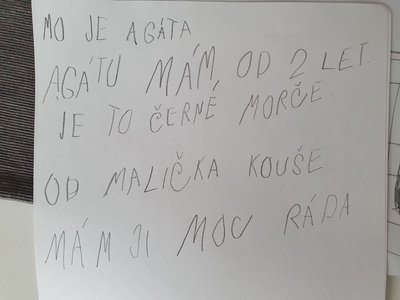 MO JE AGÁTA
AGÁTU MÁM OD 2 LET.
JE TO ČERNÉ MORČE.
OD MALIČKA KOUŠE.
MÁM JI MOC RÁDA